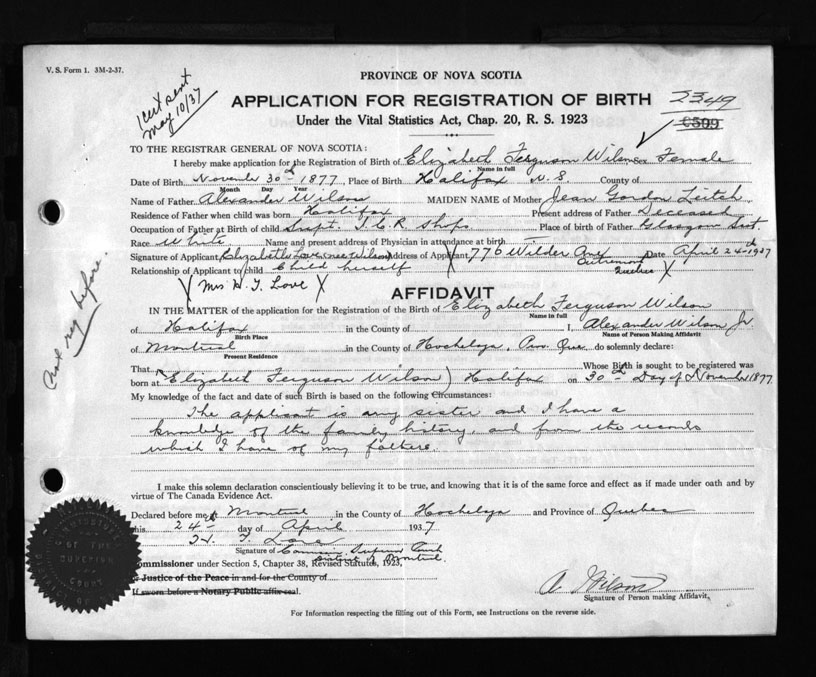 V. S. Form 1. 3M-2-37.
1 cert sent
May 10/37
PROVINCE OF NOVA SCOTIA
APPLICATION FOR REGISTRATION OF BIRTH
2349
Under the Vital Statistics Act, Chap. 20, R. S. 1923
C599
TO THE REGISTRAR GENERAL OF NOVA SCOTIA:
I hereby make application for the Registration of Birth of Elizabeth Ferguson Wilson Sex Female
Name in full
Date of Birth November 30th 1877, Place of Birth Halifax N. S County of
Month Day Year
Name of Father Alexander Wilson MAIDEN NAME of Mother Jean Gordon Leitch
Residence of Father when child was born Halifax Present address of Father Deceased
Occupation of Father at Birth of child Supt. I.C.R. Shops Place of birth of Father Glasgow Scot.
Race White Name and present address of Physician in attendance at birth
Signature of Applicant Elizabeth Love (nee Wilson) Address of Applicant 776 Wilder Ave Date April 24th 1937
Outremont
Quebec X
Relationship of Applicant to child Child herself
X Mrs H. T. Love X
AFFIDAVIT
Not reg before.
IN THE MATTER of the application for the Registration of the Birth of Elizabeth Ferguson Wilson
Name in full
of Halifax in the County of I, Alexander Wilson Jr
Birth Place Name of Person Making Affidavit
of Montreal in the County of Hochelaga, Prov. Que. do solemnly declare:
Present Residence
That Whose Birth is sought to be registered was
born at (Elizabeth Ferguson Wilson) Halifax on 30th Day of November 1877.
My knowledge of the fact and date of such Birth is based on the following Circumstances:
The applicant is my sister and I have a
knowledge of the family history, and from the records
which I have of my fathers.
I make this solemn declaration conscientiously believing it to be true, and knowing that it is of the same force and effect as if made under oath and by
virtue of The Canada Evidence Act.
Declared before me at Montreal in the County of Hochelaga and Province of Quebec
this 24th day of April 1937
H. T. Love
Signature of Commr. Superior Court
District of Montreal
Commissioner under Section 5, Chapter 38, Revised Statutes, 1923,
Justice of the Peace in and for the County of
If sworn before a Notary Public affix seal.
A Wilson
Signature of Person making Affidavit.
For Information respecting the filling out of this Form, see Instructions on the reverse side.
OF THE
SUPERIOR
COURT